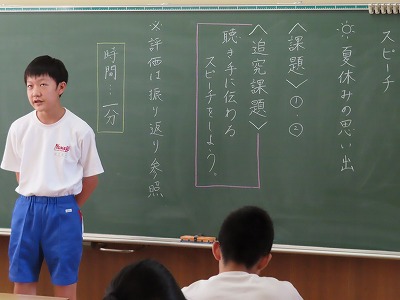 スピーチ
夏休みの思い出
〈課題〉①・②
〈追究課題〉
聴き手に伝わる
スピーチをしよう。
※評価は振り返り参照
時間…一分